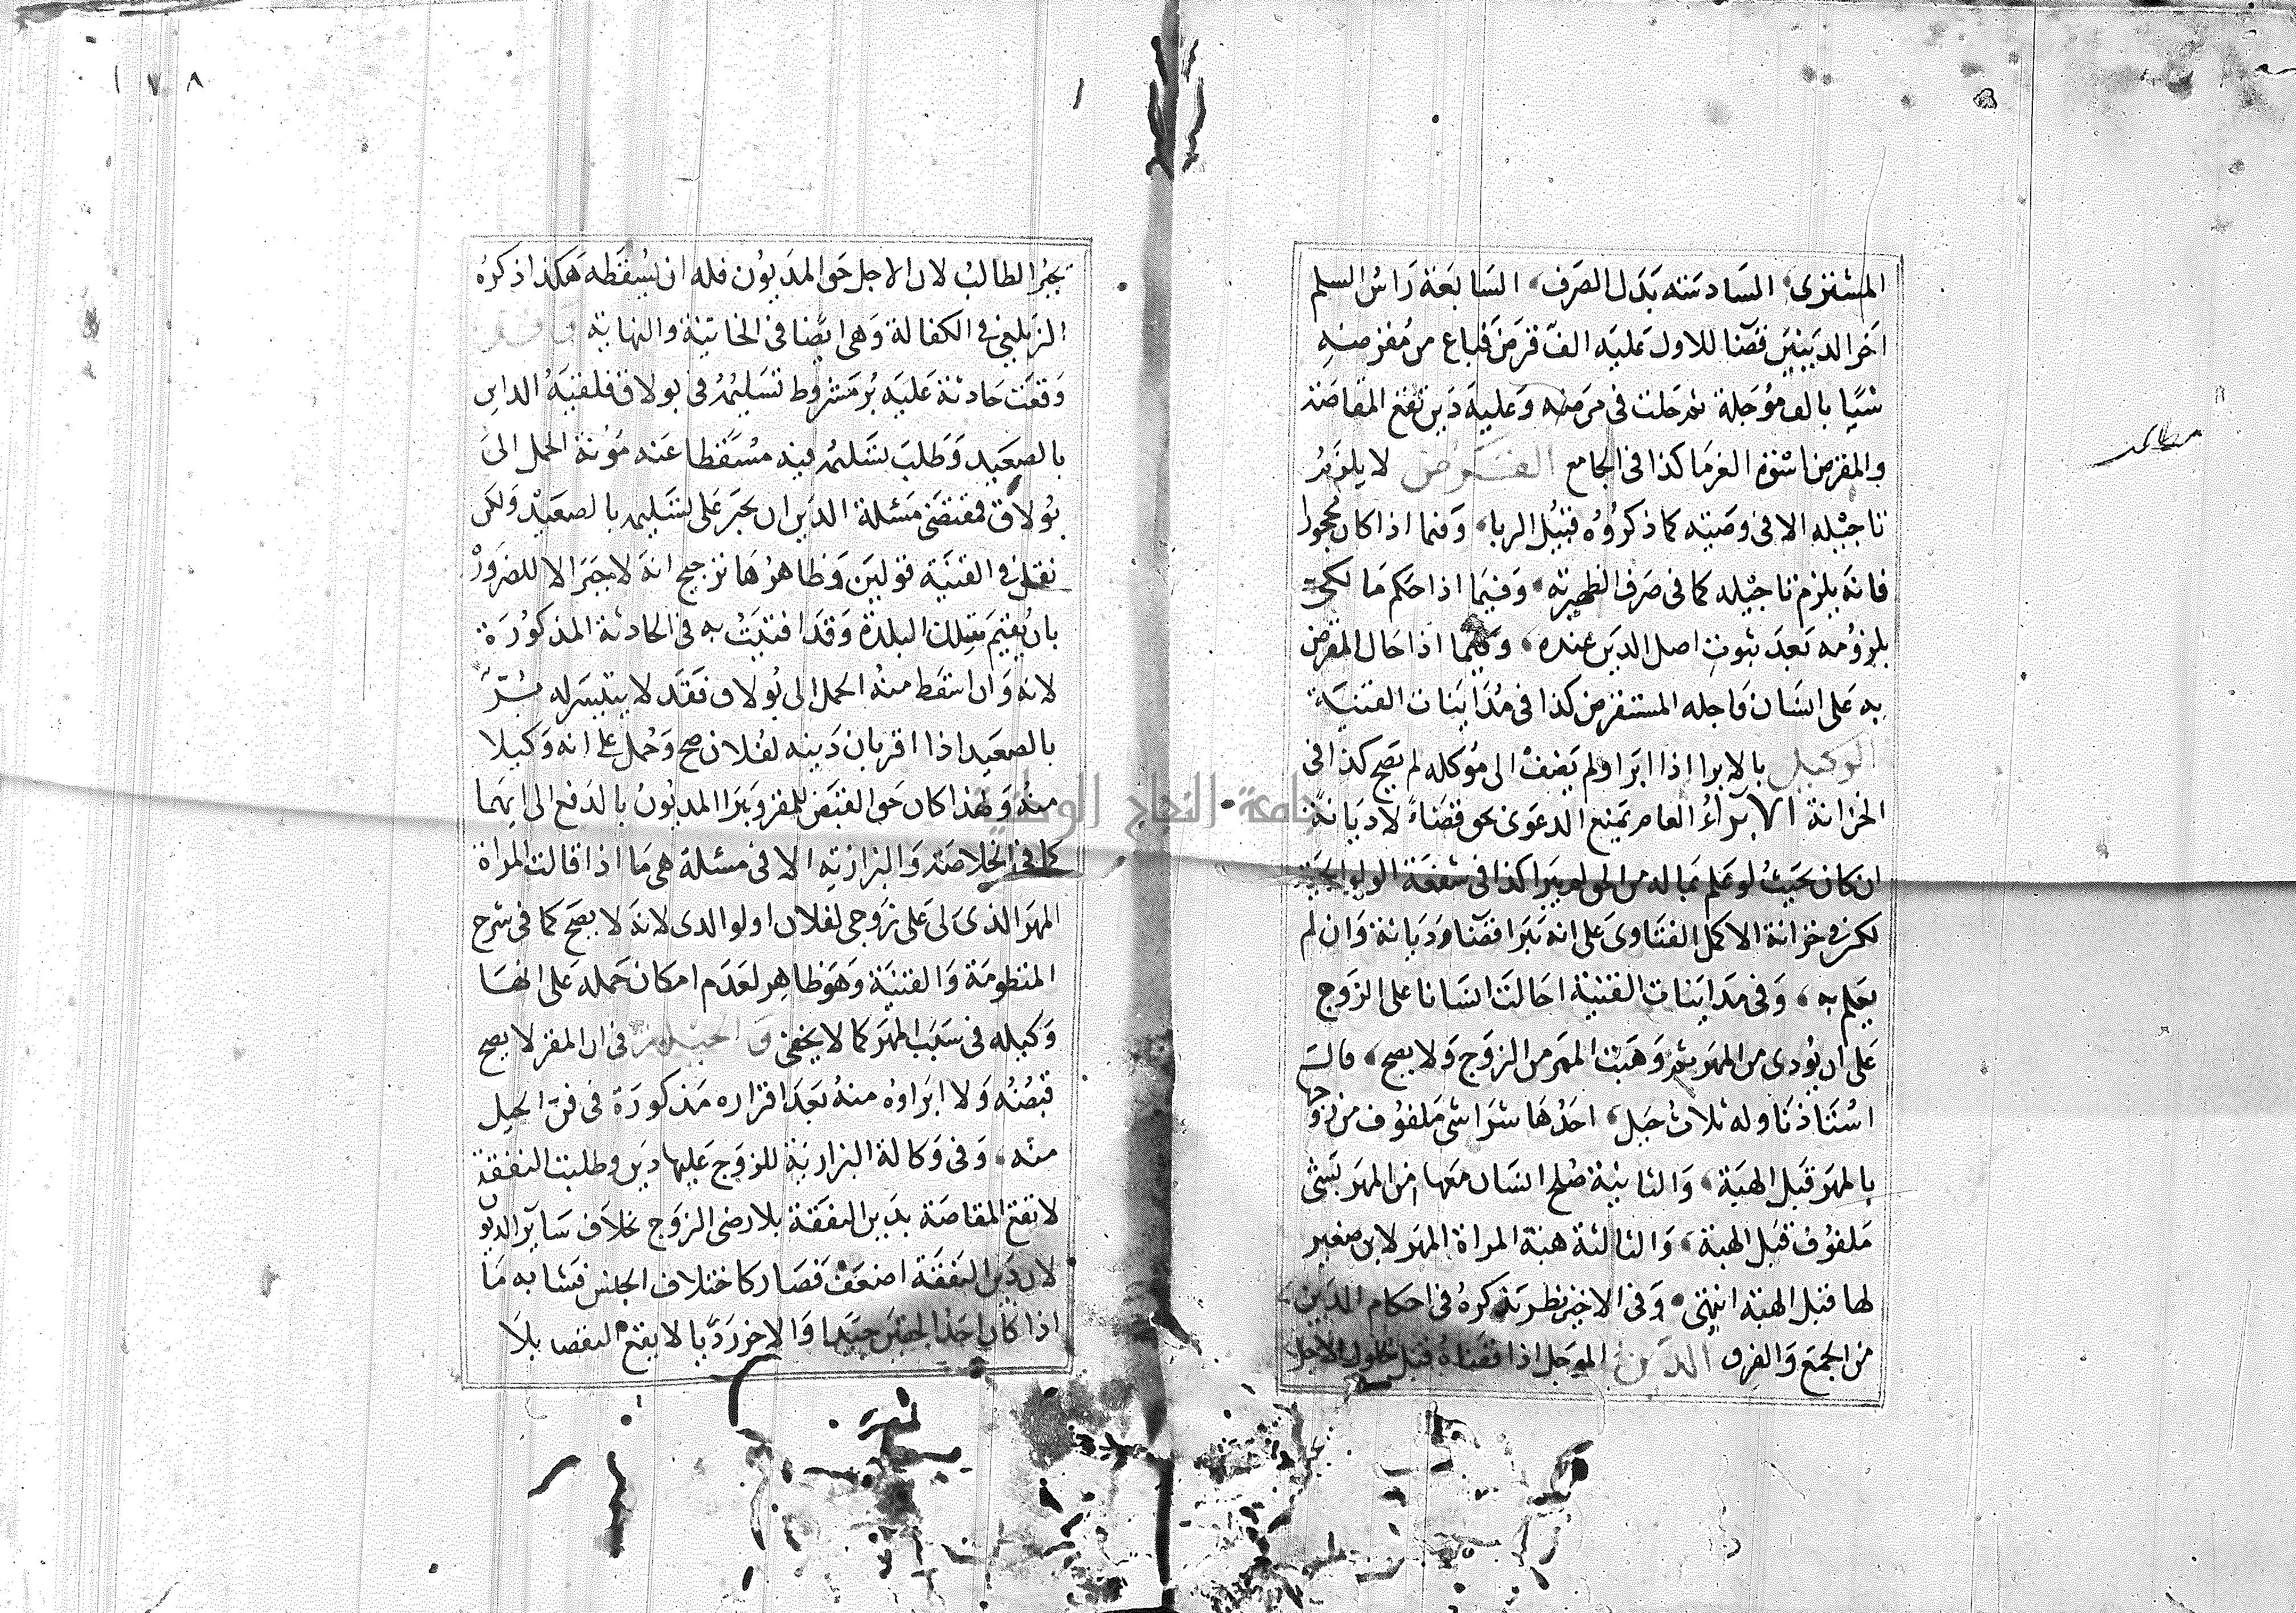 المشترى، السادسه بدل الصرف، السابعة راس السلم
اخر الدينين قضا للاول عليه الف قرض فباع من مقرضه
شيا بالف مؤجلة ثم حلت فى مرضه وعليه دين تقع المقاصة
والمقرض اسوة الغرما كذا فى الجامع القرض لا يلزم
تاجيله الا فى وصيته كما ذكروه قبيل الربا، وفيما اذا كان مجحودا
فانه يلزم تاجيله كما فى صرف الظهيرية، وفيما اذا حكم مالكى
بلزومه بعد ثبوت اصل الدين عنده، وفيما اذا حال المقرض
به على انسان فاجله المستقرض كذا فى مداينات القنية
الوكيل بالابرا اذا ابرا ولم يضف الى موكله لم يصح كذا فى
الخزانة الابراء العام يمنع الدعوى بحق قضاء لا ديانة
ان كان بحيث لو علم بماله من الحق لم يبرا كذا فى شفعة الولوالجية
لكن فى خزانة الاكمل الفتاوى على انه يبرا قضا وديانة وان لم
يعلم به، وفى مداينات القنية احالت انسانا على الزوج
على ان يؤدى من المهر ثم وهبت المهر من الزوج ولا يصح، قال
استاذنا وله ثلاث حيل، احدها شرا شى ملفوف من زوجها
بالمهر قبل الهبة، والثانية صلح انسان معها من المهر بشى
ملفوف قبل الهبة، والثالثة هبة المراة المهر لابن صغير
لها قبل الهبة انتهى، وفى الاخير نظر نذكره فى احكام الدين
من الجمع والفرق الدين المؤجل اذا قضاه قبل حلول الاجل
١٧٨
يجبر الطالب لان الاجل حق المديون فله ان يسقطه هكذا ذكره
الزيلعى فى الكفالة وهى ايضا فى الخانية والنهاية وقد
وقعت حادثة عليه بر مشروط تسليمه فى بولاق فلقيه الداين
بالصعيد وطلب تسليمه فيه مسقطا عنه مؤنة الحمل الى
بولاق فمقتضى مسئلة الدين ان يجبر على تسليمه بالصعيد ولكن
نقل فى القنية قولين وظاهرها ترجيح انه لا يجبر الا للضرورة
بان يقيم بتلك البلدة وقد افتيت به فى الحادثة المذكورة
لانه وان اسقط منه الحمل الى بولاق فقد لا يتيسر له بر
بالصعيد اذا اقر بان دينه لفلان صح وحمل على انه وكيلا
منه ولهذا كان حق القبض للمقر ويبرا المديون بالدفع الى ايهما
كما فى الخلاصة والبزازيه الا فى مسئلة هى ما اذا قالت المراة
المهر الذى لى على زوجى لفلان او لوالدى لانه لا يصح كما فى شرح
المنظومة والقنية وهو ظاهر لعدم امكان حمله على انها
وكيله فى سبب المهر كما لا يخفى و الحيلة فى ان المقر لا يصح
قبضه ولا ابراوه منه بعد اقراره مذكورة فى فن الحيل
منه، وفى وكالة البزازية للزوج عليها دين وطلبت النفقة
لا تقع المقاصة بدين النفقة بلا رضى الزوج بخلاف ساير الديون
لان دين النفقة اضعف فصار كاختلاف الجنس فشابه ما
اذا كان احد الحقين جيدا والاخر رديا لا يقع التقص بلا